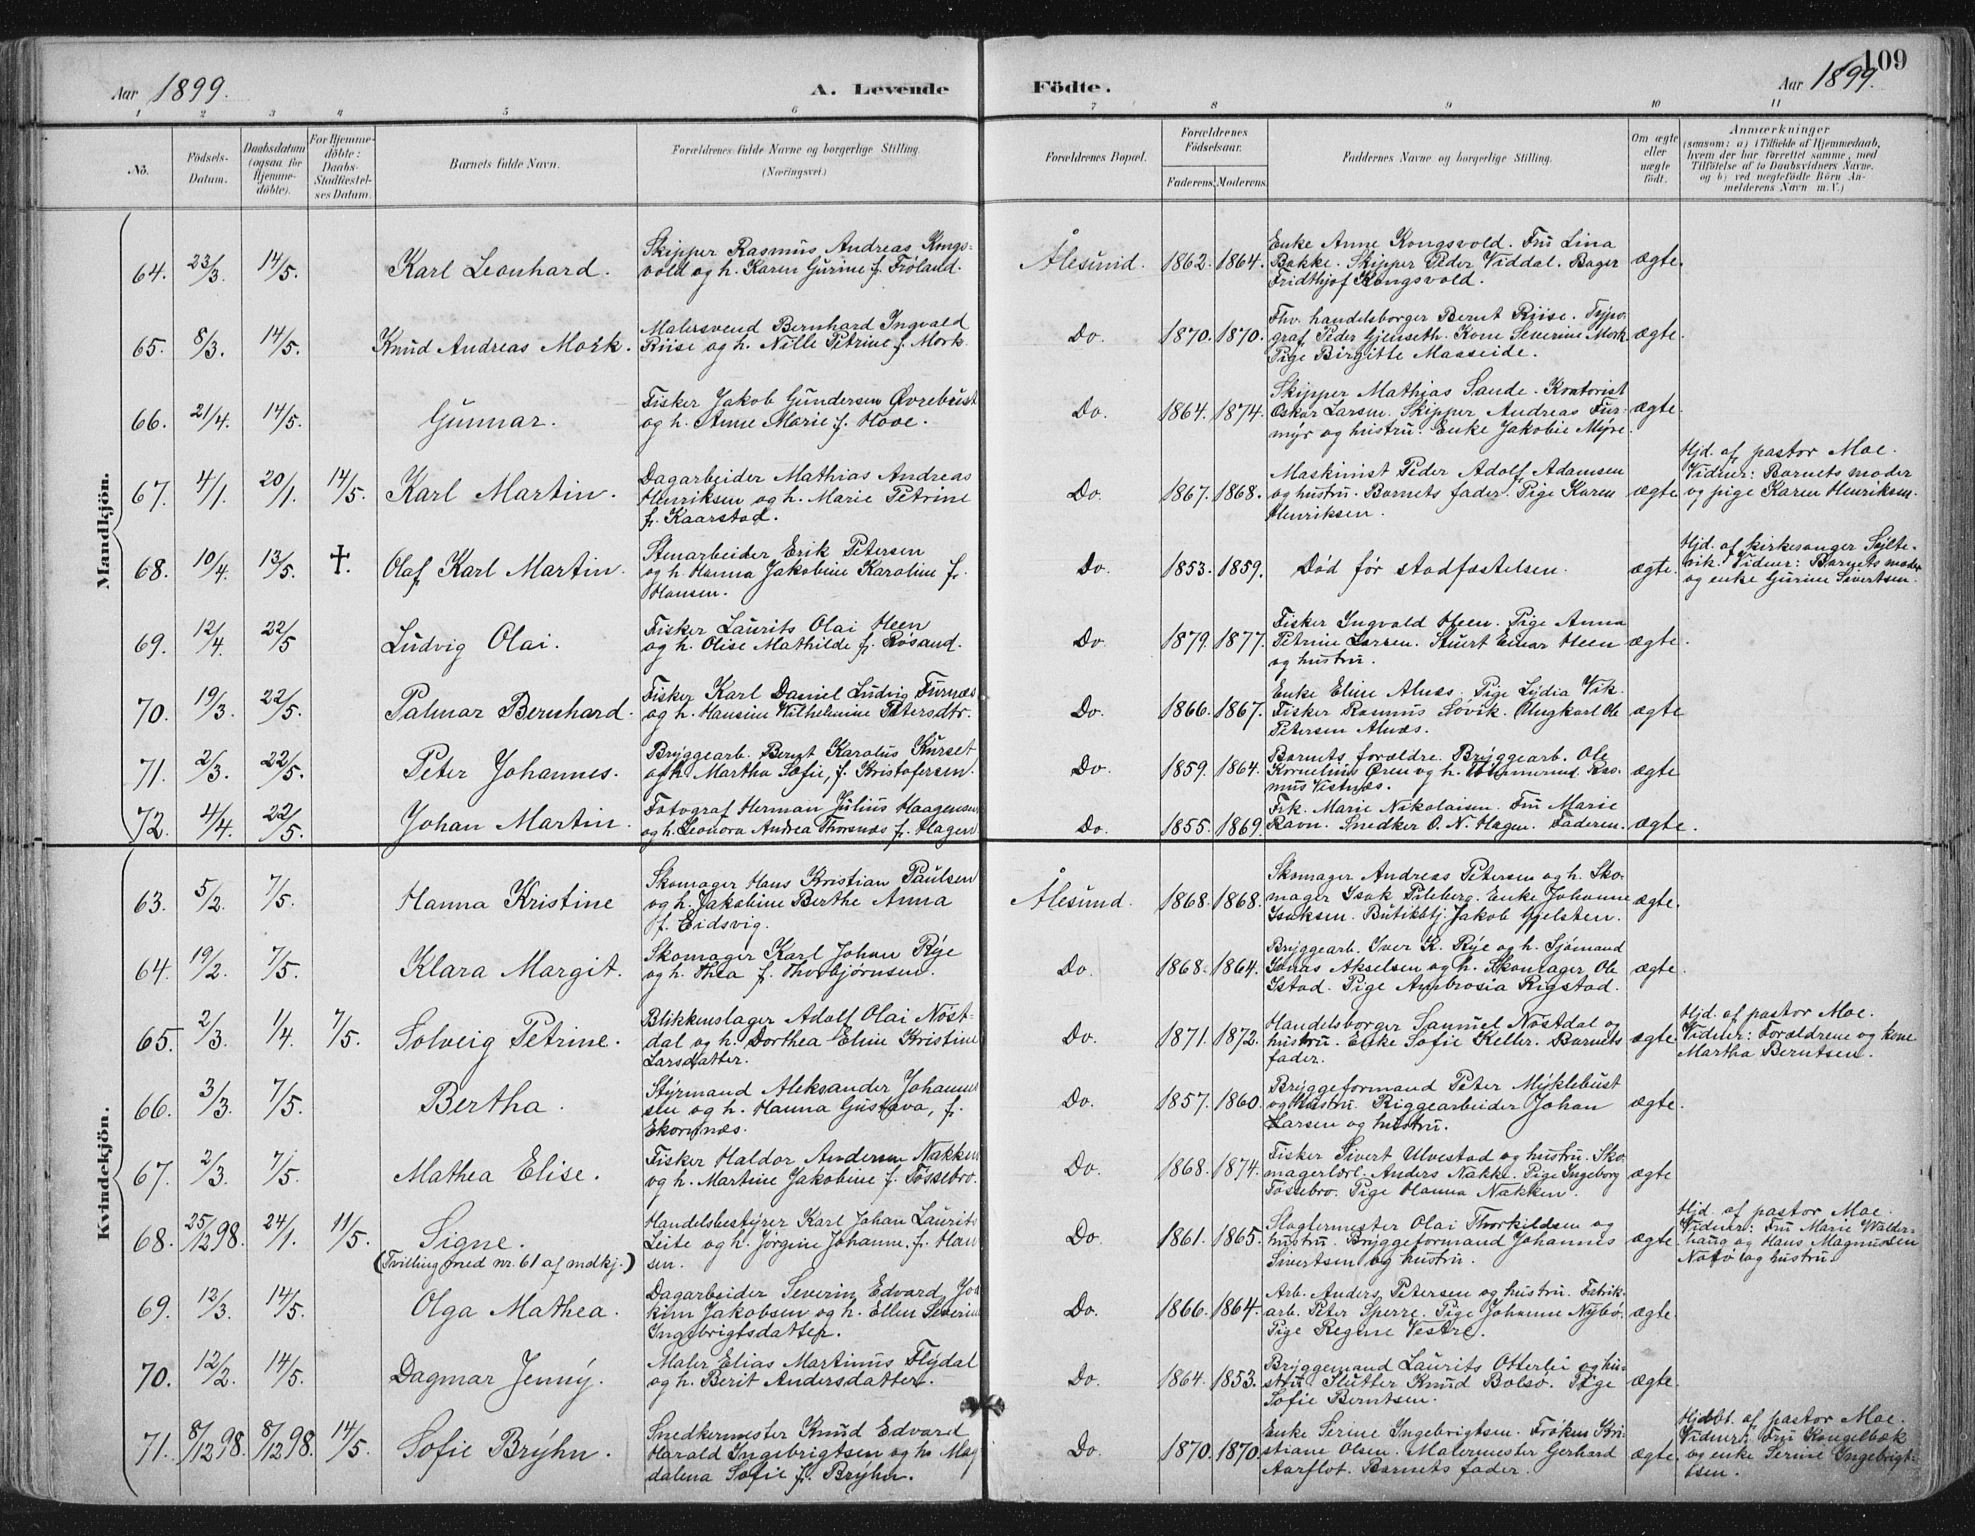 109
Aar 1899.
A. Levende Födte.
Aar 1899.
1 2 3 4 5 6 7 8 9 10 11
No.
Födsels-Datum.
Daabsdatum (ogsaa for Hjemme-döbte).
For Hjemme-döbte: Daabs-Stadfæstel-ses Datum.
Barnets fulde Navn.
Forældrenes fulde Navne og borgerlige Stilling.
(Næringsvei)
Forældrenes Bopæl.
Forældrenes Födselsaar.
Faderens. Moderens.
Faddernes Navne og borgerlige Stilling.
Om ægte eller uægte födt.
Anmærkninger
(saasom: a) i Tilfælde af Hjemmedaab,
hvem der har forrettet samme, med
Tilföielse af to Daabsvidners Navne.
og b) ved uægtefödte Börn An-
melderens Navn m. V.)
Mandkjön.
64. 23/3. 14/5. Karl Leonhard.
Skipper Rasmus Andreas Kongs-
vold og h. Karen Gurine f. Fröland.
Ålesund. 1862. 1864.
Enke Anne Kongsvold. Fru Lina
Bakke. Skipper Peder Viddal. Bager
Fridthjof Kongsvold.
ægte.
65. 8/3. 14/5. Knud Andreas Mork.
Malersvend Bernhard Ingvald
Riise og h. Nille Petrine f. Mork
Do. 1870. 1870.
Fhv. handelsborger Bernt Riise. Typo-
graf Peder Gjenseth. Kone Severine Mork
Pige Birgitte Maaseide.
ægte.
66. 21/4. 14/5. Gunnar.
Fisker Jakob Gundersen Øvrebust
og h. Anne Marie f. Hove.
Do. 1864. 1874.
Skipper Mathias Sande. Kontorist
Oskar Larsen. Skipper Andreas Fur-
myr og hustru. Enke Jakobie Myre.
ægte.
67. 4/1. 20/1. 14/5. Karl Martin.
Dagarbeider Mathias Andreas
Henriksen og h. Marie Petrine
f. Kaarstad.
Do. 1867. 1868.
Maskinist Peder Adolf Adamsen
og hustru. Barnets fader. Pige Karen
Henriksen.
ægte
Hjd. af pastor Moe.
Vidner: Barnets moder
og pige Karen Henriksen.
68. 10/4. 13/5. †. Olaf Karl Martin.
Stenarbeider Erik Petersen
og h. Hanna Jakobine Karoline f.
Hansen.
Do. 1853. 1859. Död för stadfæstelsen. ægte.
Hjd. af kirkesanger Sylte-
vik. Vidner: Barnets moder
og enke Gurine Sivertsen.
69. 12/4. 22/5 Ludvig Olai.
Fisker Laurits Olai Heen
og h. Olise Mathilde f. Rösand.
Do. 1879. 1877.
Fisker Ingvald Heen. Pige Anna
Petrine Larsen. Stuert Einar Heen
og hustru.
ægte.
70. 19/3. 22/5. Palmar Bernhard.
Fisker Karl Daniel Ludvig Furnæs
og h. Hansine Wilhelmine Petersdtr.
Do. 1866. 1867.
Enke Eline Alnæs. Pige Lydia Vik.
Fisker Rasmus Sövik. Ungkarl Ole
Petersen Alnæs.
ægte
71. 2/3. 22/5. Peter Johannes.
Bryggearb. Bernt Karolus Kurset
og h. Martha Sofie, f. Kristofersen.
Do. 1859. 1864.
Barnets forældre. Bryggearb. Ole
Kornelius Ören og h. Ras-
mus Vestnæs.
ægte
72. 4/4. 22/5. Johan Martin.
Fotograf Herman Julius Haagensen
og h. Leonora Andrea Thorsnæs f. Hagen
Do. 1855. 1869.
Frk. Marie Nikolaisen. Fru Marie
Ravn. Snedker O. N. Hagen. Faderen.
ægte.
Kvindekjön.
63. 5/2. 7/5. Hanna Kristine
Skomager Hans Kristian Paulsen
og h. Jakobine Berthe Anna
f. Eidsvig.
Ålesund. 1868. 1868.
Skomager Andreas Petersen og h. Sko-
mager Isak Pileberg. Enke Johanne
Isaksen. Butikbtj. Jakob Gjelsten.
ægte.
64. 19/2. 7/5. Klara Margit.
Skomager Karl Johan Rye
og h. Thea f. Thorbjörnsen.
Do. 1868. 1864.
Bryggearb. Iver K. Rye og h. Sjömand
Jonas Akselsen og h. Skomager Ole
Istad. Pige Ambrosia Rigstad.
ægte.
65. 2/3. 1/4. 7/5. Solveig Petrine.
Blikkenslager Adolf Olai Nöst-
dal og h. Dorthea Eline Kristine
Larsdatter.
Do. 1871. 1872.
Handelsborger Samuel Nöstdal og
hustru. Enke Sofie Keller. Barnets
fader.
ægte
Hjd. af pastor Moe.
Vidner: Forældrene og kone
Martha Berntsen.
66. 3/3. 7/5. Bertha.
Styrmand Aleksander Johanne-
sen og h. Hanna Gustava, f.
Ekornæs.
Do. 1857. 1860.
Bryggeformand Peter Myklebust
og hustru. Riggearbeider Johan
Larsen og hustru.
ægte.
67. 2/3. 7/5. Mathea Elise.
Fisker Haldor Andersen Nakken
og h. Martine Jakobine f. Fossebro.
Do. 1868. 1874.
Fisker Sivert Ulvestad og hustru. Sko-
magerlærl. Anders Nakke. Pige Ingeborg
Fossebro. Pige Hanna Nakken.
ægte
68. 25/12 98. 24/1. 11/5. Signe.
(Tvilling med nr. 61 af mdkj.)
Handelsbestyrer Karl Johan Laurits
Leite og h. Jörgine Johanne, f. Han
sen.
Do. 1861. 1865.
Slagtermester Olai Thorkildsen og
hustru. Bryggeformand Johannes
Sivertsen og hustru.
ægte.
Hjd. af pastor Moe.
Vidner: Fru Marie Walder-
haug og Hans Magnussen
Notö og hustru.
69. 12/3. 14/5. Olga Mathea.
Dagarbeider Severin Edvard Joa
kim Jakobsen og h. Ellen Severine
Ingebrigtsdatter.
Do. 1866. 1864.
Arb. Anders Petersen og hustru. Fabrik-
arb. Peter Sperre. Pige Johanne Nybö.
Pige Regine Vestre.
ægte.
70. 12/2. 14/5. Dagmar Jenny.
Maler Elias Martinus Flydal
og h. Berit Andersdatter.
Do. 1864. 1853.
Bryggemand Laurits Otterlei og hu-
stru. Slutter Knud Bolsö. Pige
Sofie Berntsen.
ægte.
71. 8/12 98. 8/12 98. 14/5. Sofie Bryhn.
Snedkermester Knud Edvard
Harald Ingebrigtsen og h. Mag
dalena Sofie f. Bryhn.
Do. 1870. 1870.
Enke Serine Ingebrigtsen. Fröken Kri-
stiane Olsen. Malermester Gerhard
Aarflot. Barnets fader.
ægte.
Hjdbt. af pastor Moe.
Vidner: Fru Kongelbæk
og enke Serine Ingebrigt-
sen.